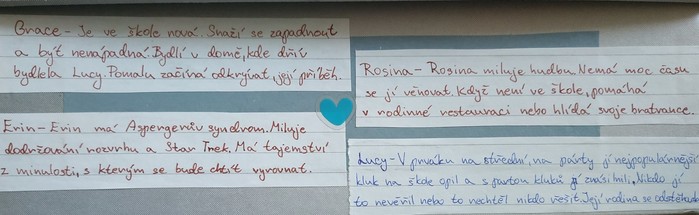 Grace - Je ve škole nová. Snaží se zapadnout
a být nenápadná. Bydlí v domě, kde dřív
bydlela Lucy. Pomalu začíná odkrývat její příběh.
Rosina - Rosina miluje hudbu. Nemá moc času
se jí věnovat. Když není ve škole, pomáhá
v rodinné restauraci nebo hlídá svoje bratrance.
Erin - Erin má Aspengerův syndrom. Miluje
dodržování rozvrhu a Star Trek. Má tajemství
z minulosti, s kterým se bude chtít vyrovnat.
Lucy - V prváku na střední, na párty jí nejpopulárnější
kluk na škole opil a s partou kluků jí znásilnili. Nikdo jí
to nevěřil nebo to nechtěl nikdo řešit. Její rodina se odstěhovala